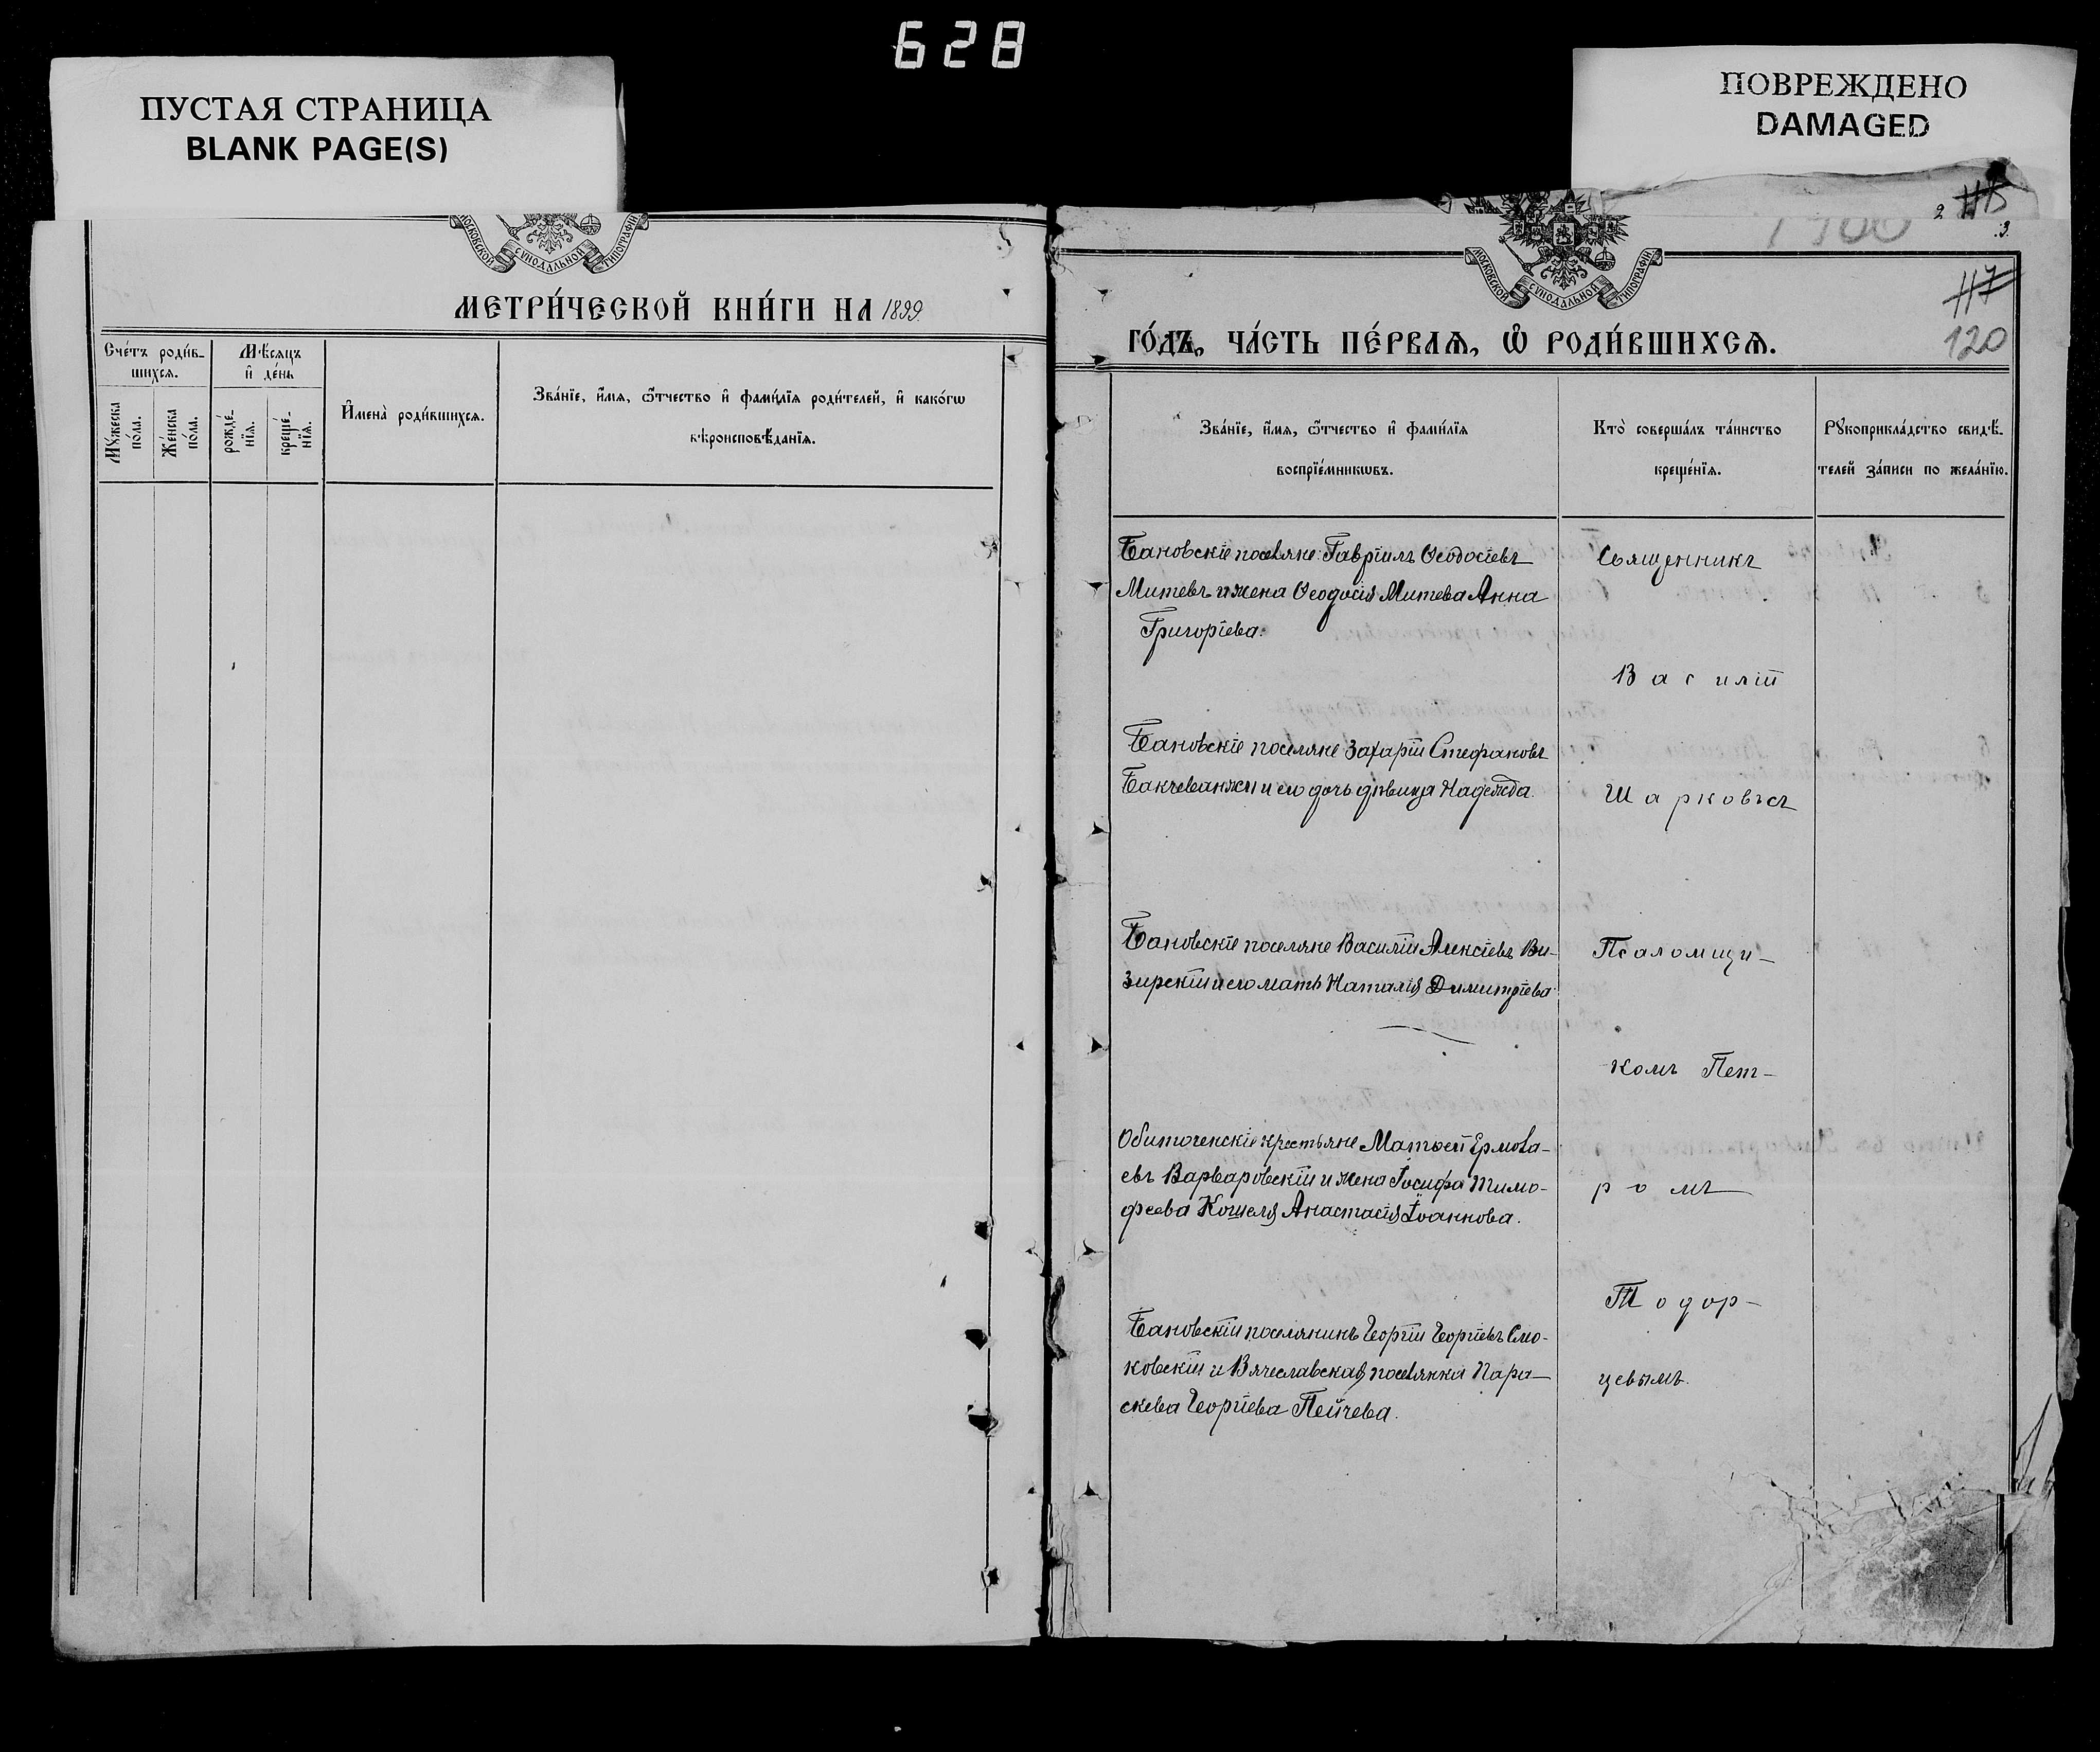 628
ПУСТАЯ СТРАНИЦА
BLANK PAGE(S)
ПОВРЕЖДЕНО
DAMAGED
МОСКОВСКОЙ СѴНОДАЛЬНОЙ ТИПОГРАФІИ
МЕТРИ́ЧЕСКОЙ КНИ́ГИ НА 1899
Сче́тъ роди́в-
шихсѧ.
Мѣ́сѧцъ
и҆ де́нь
Мꙋ́жеска
по́ла.
Же́нска
по́ла.
рожде́-
нїѧ.
креще́-
нїѧ.
И҆мена̀ роди́вшихсѧ.
Зва́нїе, и҆́мѧ, ѻ҆́тчество и҆ фами́лїѧ роди́телей, и҆ како́гѡ
вѣроисповѣ́данїѧ.
2
3.
МОСКОВСКОЙ СѴНОДАЛЬНОЙ ТИПОГРАФІИ
117
120
ГО́ДЪ, ЧА́СТЬ ПЕ́РВАѦ, Ѡ҆ РОДИ́ВШИХСѦ.
Зва́нїе, и҆́мѧ, ѻ҆́тчество и҆ фами́лїѧ
воспрїе́мникѡвъ.
Кто̀ соверша́лъ та́инство
креще́нїѧ.
Рꙋкоприкла́дство свидѣ́-
телей за́писи по жела́нїю.
Бановскіе поселяне: Гавріилъ Ѳеодосіевъ
Митевъ и жена Ѳеодосія Митева Анна
Григоріева.
Священникъ
Василій
Бановскіе поселяне Захарій Стефановъ
Бакчеванжи и его дочь дѣвица Надежда.
Шарковъ съ
Бановскіе поселяне Василій Алексіевъ Ви-
зирскій и его мать Наталія Димитріева
Псаломщи-
комъ Пет-
Обиточенскіе крестьяне Матѳей Ермола-
евъ Варваровскій и жена Іосифа Тимо-
феева Кошеля Анастасія Іоаннова.
ромъ
Тодор-
Бановскій поселянинъ Георгій Георгіевъ Смо-
ковскій и Вячеславская поселянка Пара-
скева Георгіева Пейчева.
цевымъ.